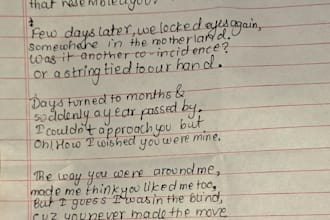 that resembled you.
Few days later, we locked eyes again,
somewhere in the motherland.
Was it another co-incidence?
or a string tied to our hand.
Days turned to months &
suddenly a year passed by.
I couldn't approach you but
Oh! How I wished you were mine.
The way you were around me,
made me think you liked me too,
But I guess I was in the blind,
cuz you never made the move